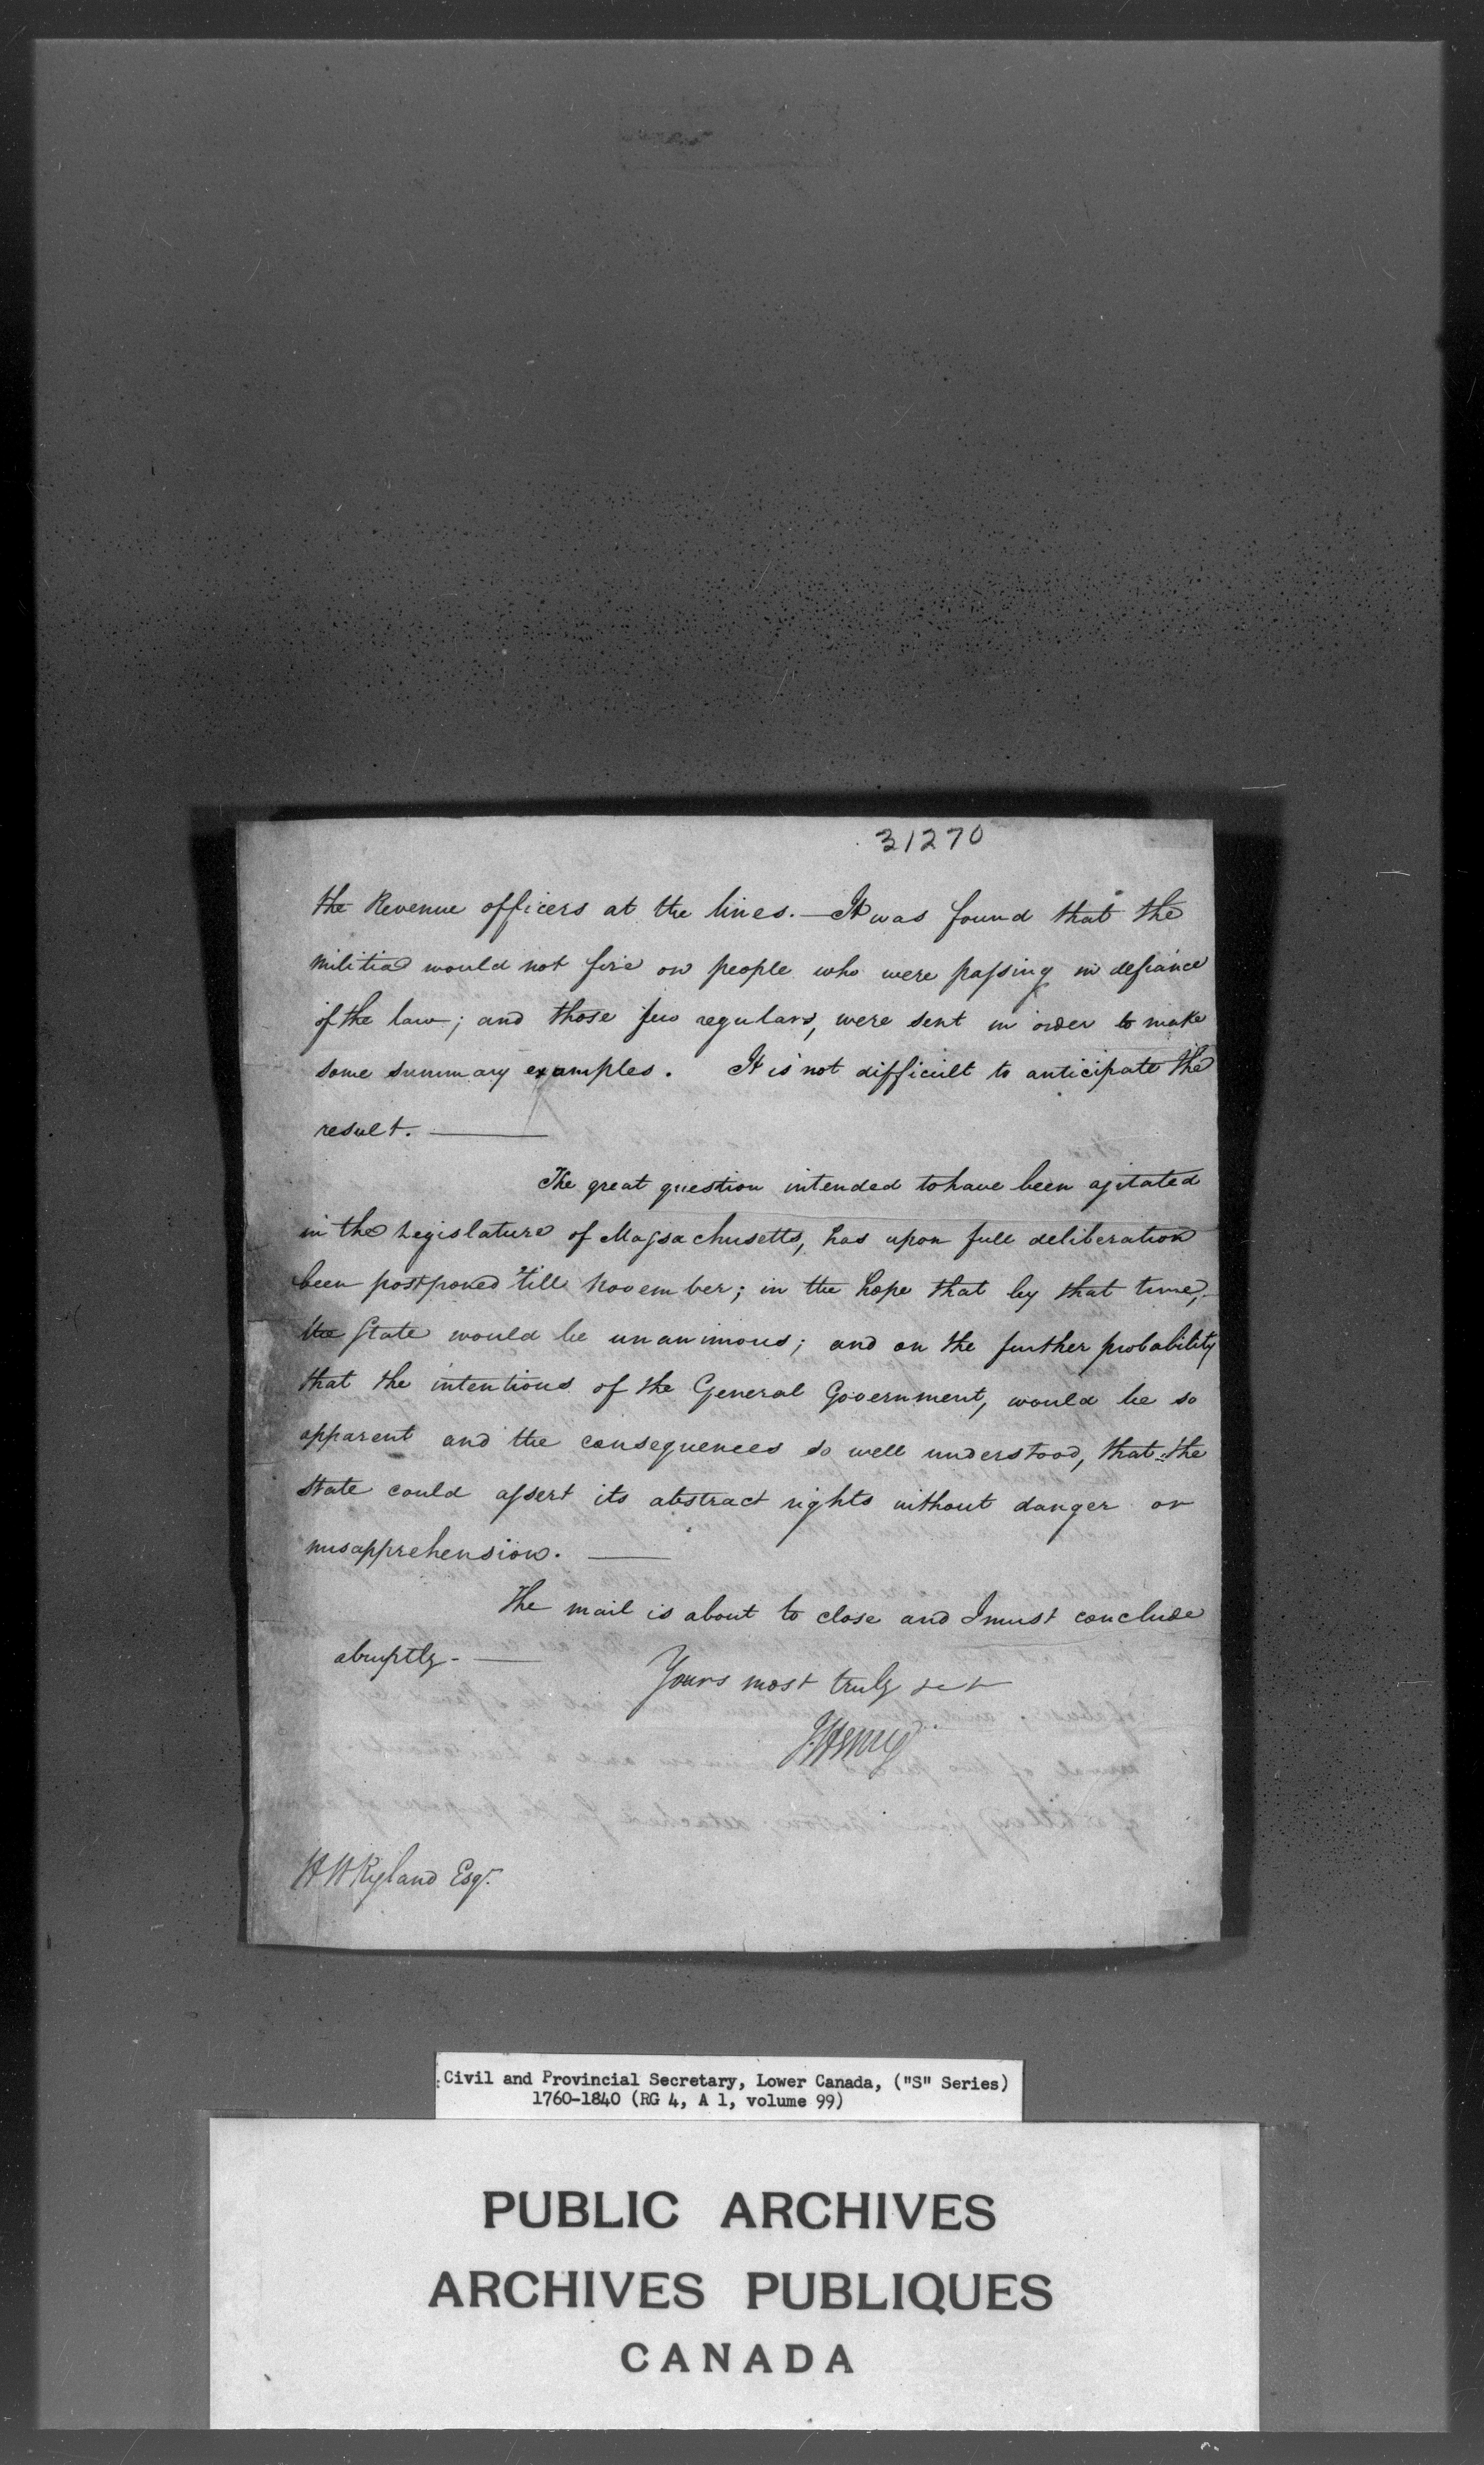 31270
the Revenue officers at the lines. — It was found that the
militia would not fire on people who were passing in defiance
of the law; and those few regulars, were sent in order to make
some summary examples. It is not difficult to anticipate the
result. —
The great question intended to have been agitated
in the Legislature of Massachusetts, has upon full deliberation
been postponed 'till November; in the hope that by that time,
the State would be unanimous; and on the further probability
that the intentions of the General Government, would be so
apparent and the consequences so well understood, that the
State could assert its abstract rights without danger or
misapprehension. —
The mail is about to close and I must conclude
abruptly. —
Yours most truly &c &c
J Henry
H W Ryland Esqr.
Civil and Provincial Secretary, Lower Canada, ("S" Series)
1760-1840 (RG 4, A 1, volume 99)
PUBLIC ARCHIVES
ARCHIVES PUBLIQUES
CANADA